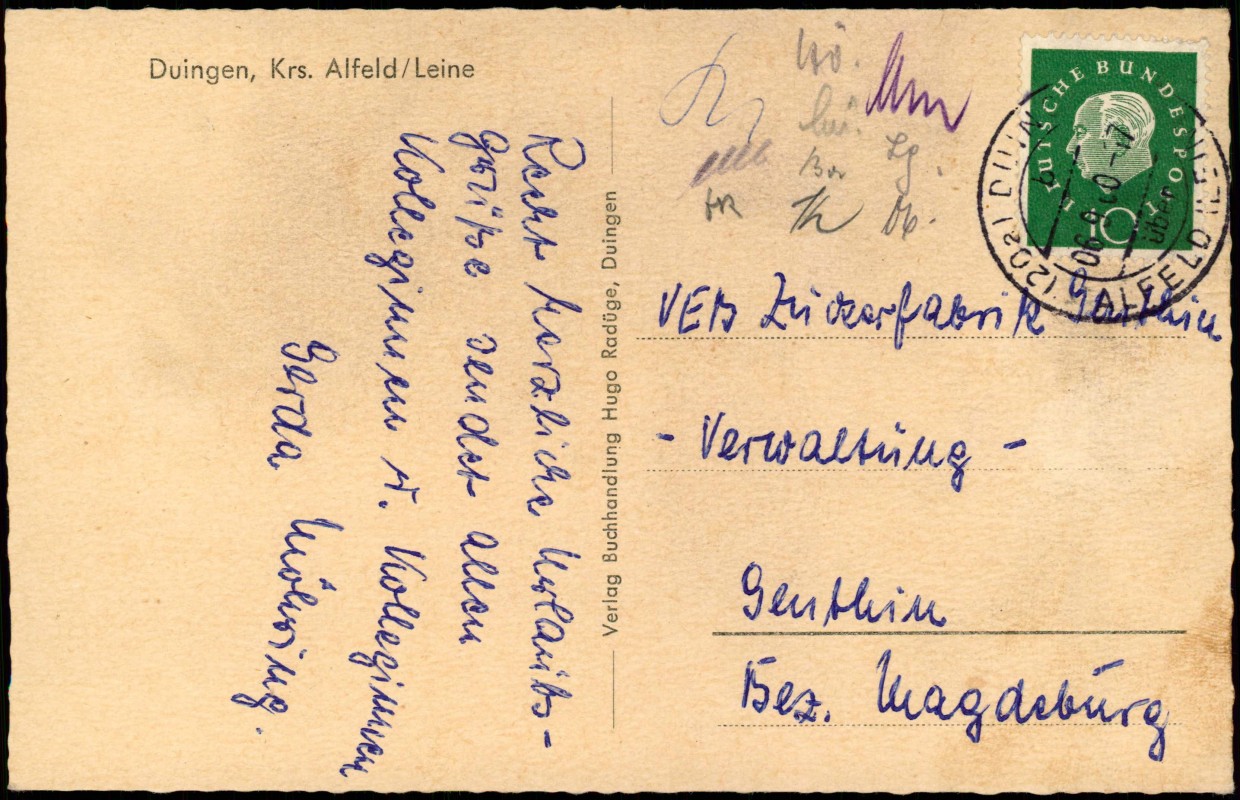 Duingen, Krs. Alfeld/Leine
Recht herzliche Urlaubs-
grüße sendet allen
Kolleginnen u. Kolleginnen
Gerda
Verlag Buchhandlung Hugo Radüge, Duingen
DEUTSCHE BUNDESPOST
10
(20a) DUIN
über
ALFELD (LEINE)
Hö.
Lg.
VEB Zuckerfabrik Genthin
- Verwaltung -
Genthin
Bez. Magdeburg